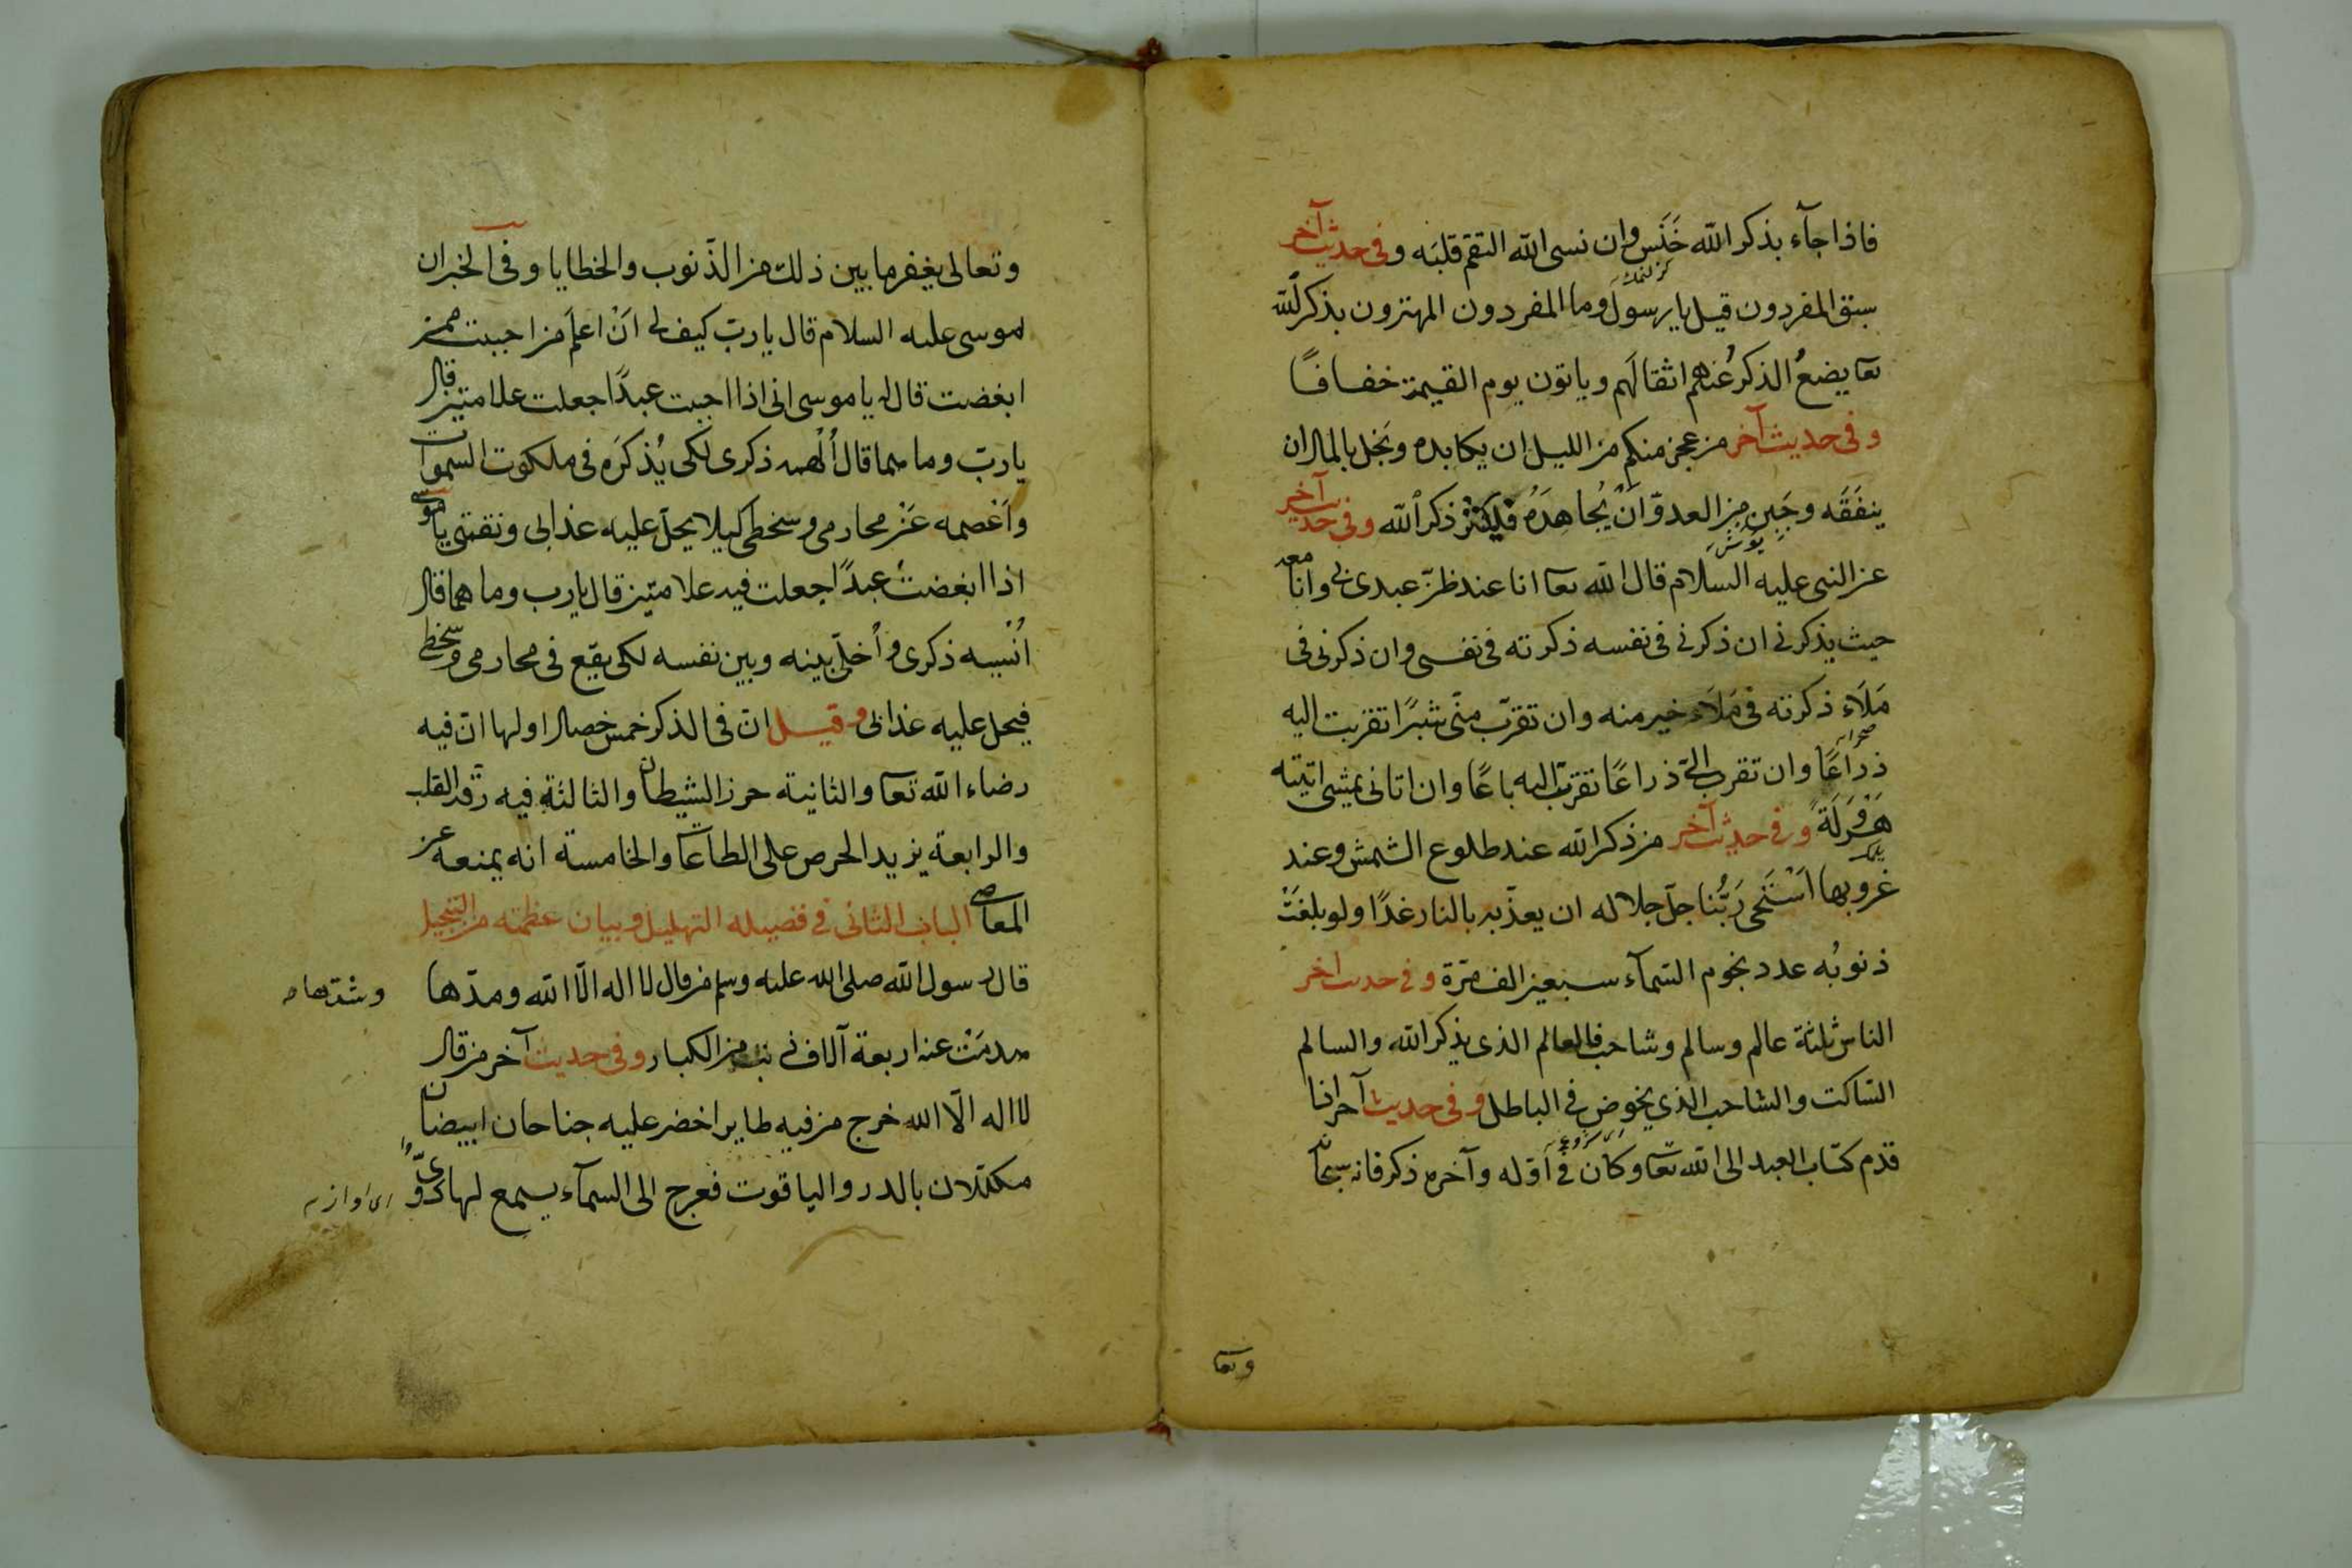 فاذا جآء بذكر الله خَنَس وان نسى الله التقم قلبَه وفى حديث آخر
سبق المفردون قيل يا رسول وما المفردون المهتزون بذكر الله
تعا يضعُ الذكرُ عنهم اثقالَهم وياتون يوم القيمة خفافًا
وفى حديث آخر من عجز منكم من الليل ان يكابده وبَخل بالمال ان
ينفقَه وجَبن من العدوّ انْ يُجاهدَهُ فليكثرْ ذكر الله وفى حديث آخر
عن النبى عليه السلام قال الله تعا انا عند ظنّ عبدى بى وانا معه
حيث يذكرنى ان ذكرنى فى نفسه ذكرته فى نفسى وان ذكرنى فى
مَلَاء ذكرته فى مَلَاء خير منه وان تقرّب منّى شبرًا تقربت اليه
ذراعًا وان تقرب الىّ ذراعًا تقرّبت اليه باعًا وان اتانى يمشى اتيته
هَرْوَلَةً وفى حديث آخر من ذكر الله عند طلوع الشمش وعند
غروبها اسْتَحْى رَبُّنا جلّ جلاله ان يعذّبه بالنار غدًا ولو بلغَتْ
ذنوبُه عدد نجوم السّمآء سبعين الف مرّة وفى حديث اخر
الناس ثلثة عالم وسالم وشاحب فالعالم الذى يذكر الله والسالم
السّاكت والشاحب الذى يخوض فى الباطل وفى حديث آخر اذا
قدّم كتاب العبد الى الله تعا وكان فى اوّله وآخره ذكر فانه سبحانه
وتعا
وتعالى يغفر ما بين ذلك من الذّنوب والخطايا وفى الخبر ان
موسى عليه السلام قال يا ربّ كيف لى انْ اعلَم من احببت ممن
ابغضت قال له يا موسى انى اذا احببت عبدًا جعلت علامتين قال
يا ربّ وما هما قال اُلْهمه ذكرى لكى يُذكرَه فى ملكوت السموات
واَعْصمه عَنْ محارمى وسخطى كيلا يحلّ عليه عذابى ونقمتى يا موسى
اذا ابغضت عبدًا جعلت فيه علامتين قال يا رب وما هما قال
اُنْسيه ذكرى واُخلّى بينه وبين نفسه لكى يقع فى محارمى وسخطى
فيحل عليه عذابى وقيل انّ فى الذكر خمس خصال اولها انّ فيه
رضاء الله تعا والثانية حرز الشيطان والثالثة فيه رقّة القلب
والرابعة يزيد الحرص على الطاعات والخامسة انه يمنعه عن
المعاصى الباب الثانى فى فضيله التهليل وبيان عظمته من التبجيل
قال رسول الله صلى الله عليه وسلم من قال لا اله الّا الله ومدّها
وشدّها
هدمَتْ عنه اربعة آلاف ذنب من الكبار وفى حديث آخر من قال
لا اله الّا الله خرج من فيه طاير اخضر عليه جناحان ابيضان
مكلّلان بالدر والياقوت فعرج الى السمآء يسمع لها دوىّ
اى اواز